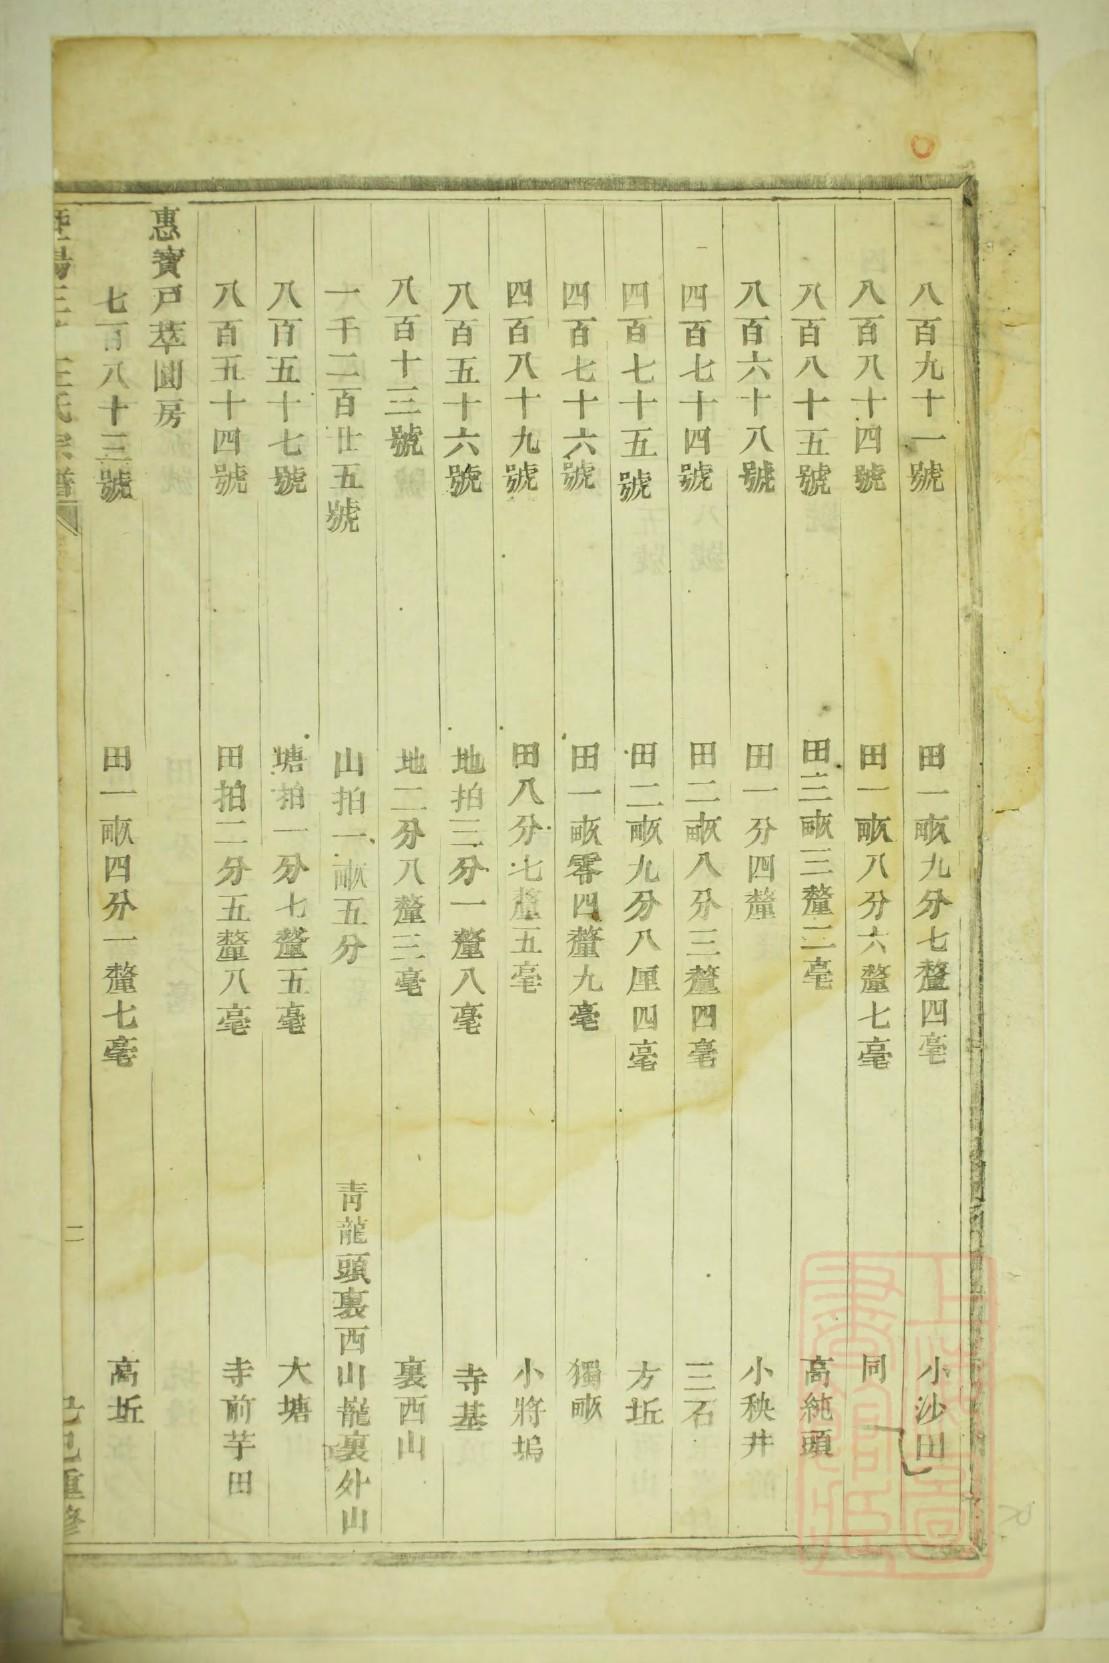 八百九十一號 田一畝九分七釐四毫 小沙田
八百八十四號 田一畝八分六釐七毫 同
八百八十五號 田三畝三釐二毫 高純頭
八百六十八號 田一分四釐 小秧井
四百七十四號 田二畝八分三釐四毫 三石
四百七十五號 田二畝九分八厘四毫 方坵
四百七十六號 田一畝零四釐九毫 獨畝
四百八十九號 田八分七釐五毫 小將塢
八百五十六號 地拍三分一釐八毫 寺基
八百十三號 地二分八釐三毫 裏西山
一千二百廿五號 山拍一畝五分 青龍頭裏西山巃裏外山
八百五十七號 塘拍一分七釐五毫 大塘
八百五十四號 田拍二分五釐八毫 寺前芋田
惠寶戸萃圓房
七百八十三號 田一畝四分一釐七毫 高坵
王氏宗譜 二 己巳重修